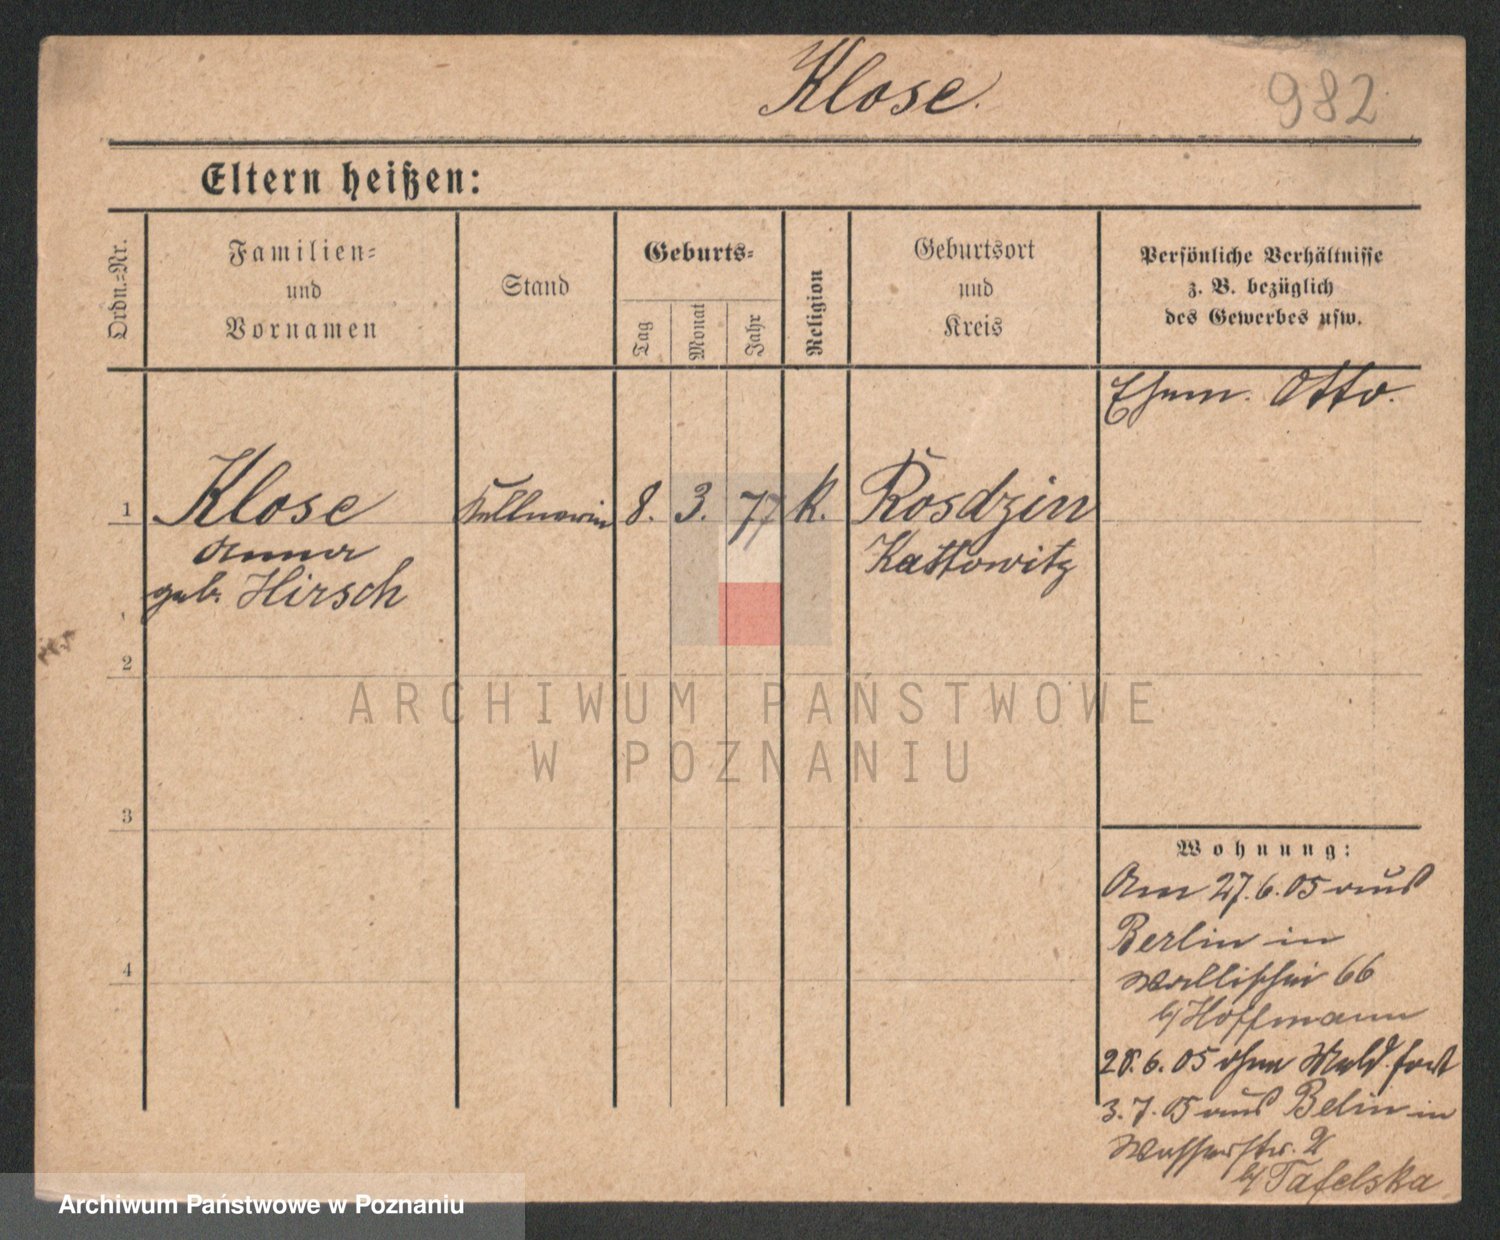 Klose.
982
Eltern heißen:
Ordn.=Nr.
Familien=
und
Vornamen
Stand
Geburts=
Tag
Monat
Jahr
Religion
Geburtsort
und
Kreis
Persönliche Verhältnisse
z. B. bezüglich
des Gewerbes usw.
Ehem. Otto.
1
Klose
Anna
geb. Hirsch
Kellnerin
8.
3.
77
K.
Rosdzin
Kattowitz
2
3
4
ARCHIWUM PAŃSTWOWE
W POZNANIU
Wohnung:
Am 27.6.05 aus
Berlin in
Wallischei 66
b/ Hoffmann
28.6.05 ohne Meld. fort
3.7.05 aus Belin in
Wasserstr. 2
b/ Tafelska
Archiwum Państwowe w Poznaniu